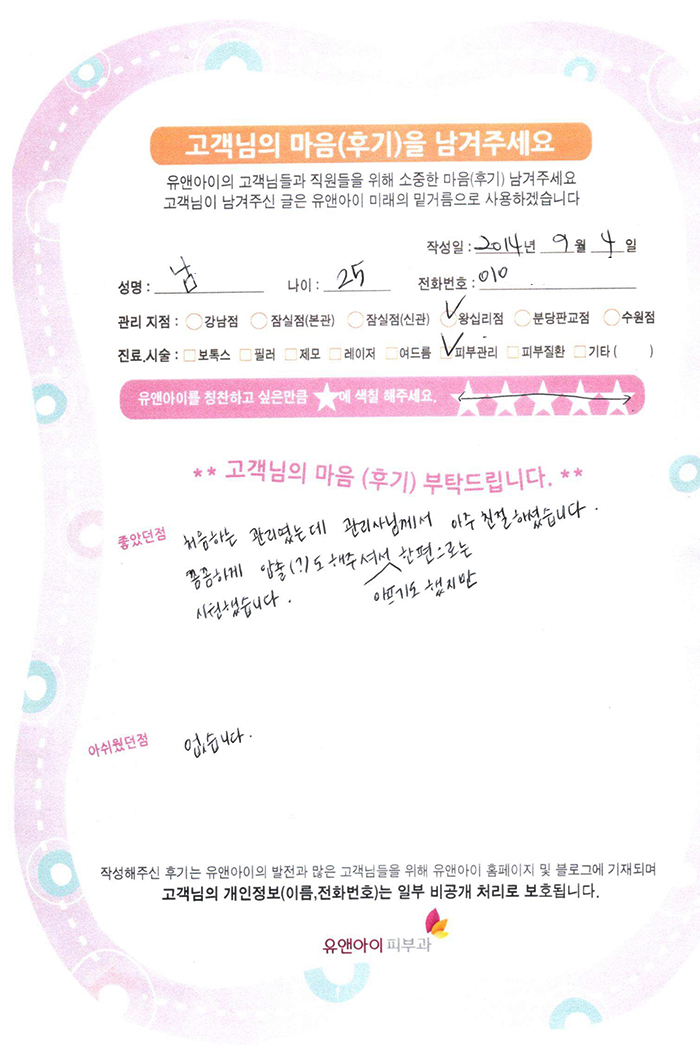 고객님의 마음(후기)을 남겨주세요
유앤아이의 고객님들과 직원들을 위해 소중한 마음(후기) 남겨주세요
고객님이 남겨주신 글은 유앤아이 미래의 밑거름으로 사용하겠습니다
작성일 : 2014년 9월 4일
성명 : 남 나이 : 25 전화번호 : 010
관리 지점 : 강남점 잠실점(본관) 잠실점(신관) 왕십리점 분당판교점 수원점
진료.시술 : 보톡스 필러 제모 레이저 여드름 피부관리 피부질환 기타 ( )
유앤아이를 칭찬하고 싶은만큼 ★에 색칠 해주세요. ★★★★★
** 고객님의 마음 (후기) 부탁드립니다. **
좋았던점 처음하는 관리였는데 관리사님께서 아주 친절하셨습니다.
꼼꼼하게 압출(?)도 해주셔서 한편으로는
시원했습니다. 아프기도 했지만
아쉬웠던점 없습니다.
작성해주신 후기는 유앤아이의 발전과 많은 고객님들을 위해 유앤아이 홈페이지 및 블로그에 기재되며
고객님의 개인정보(이름,전화번호)는 일부 비공개 처리로 보호됩니다.
유앤아이 피부과